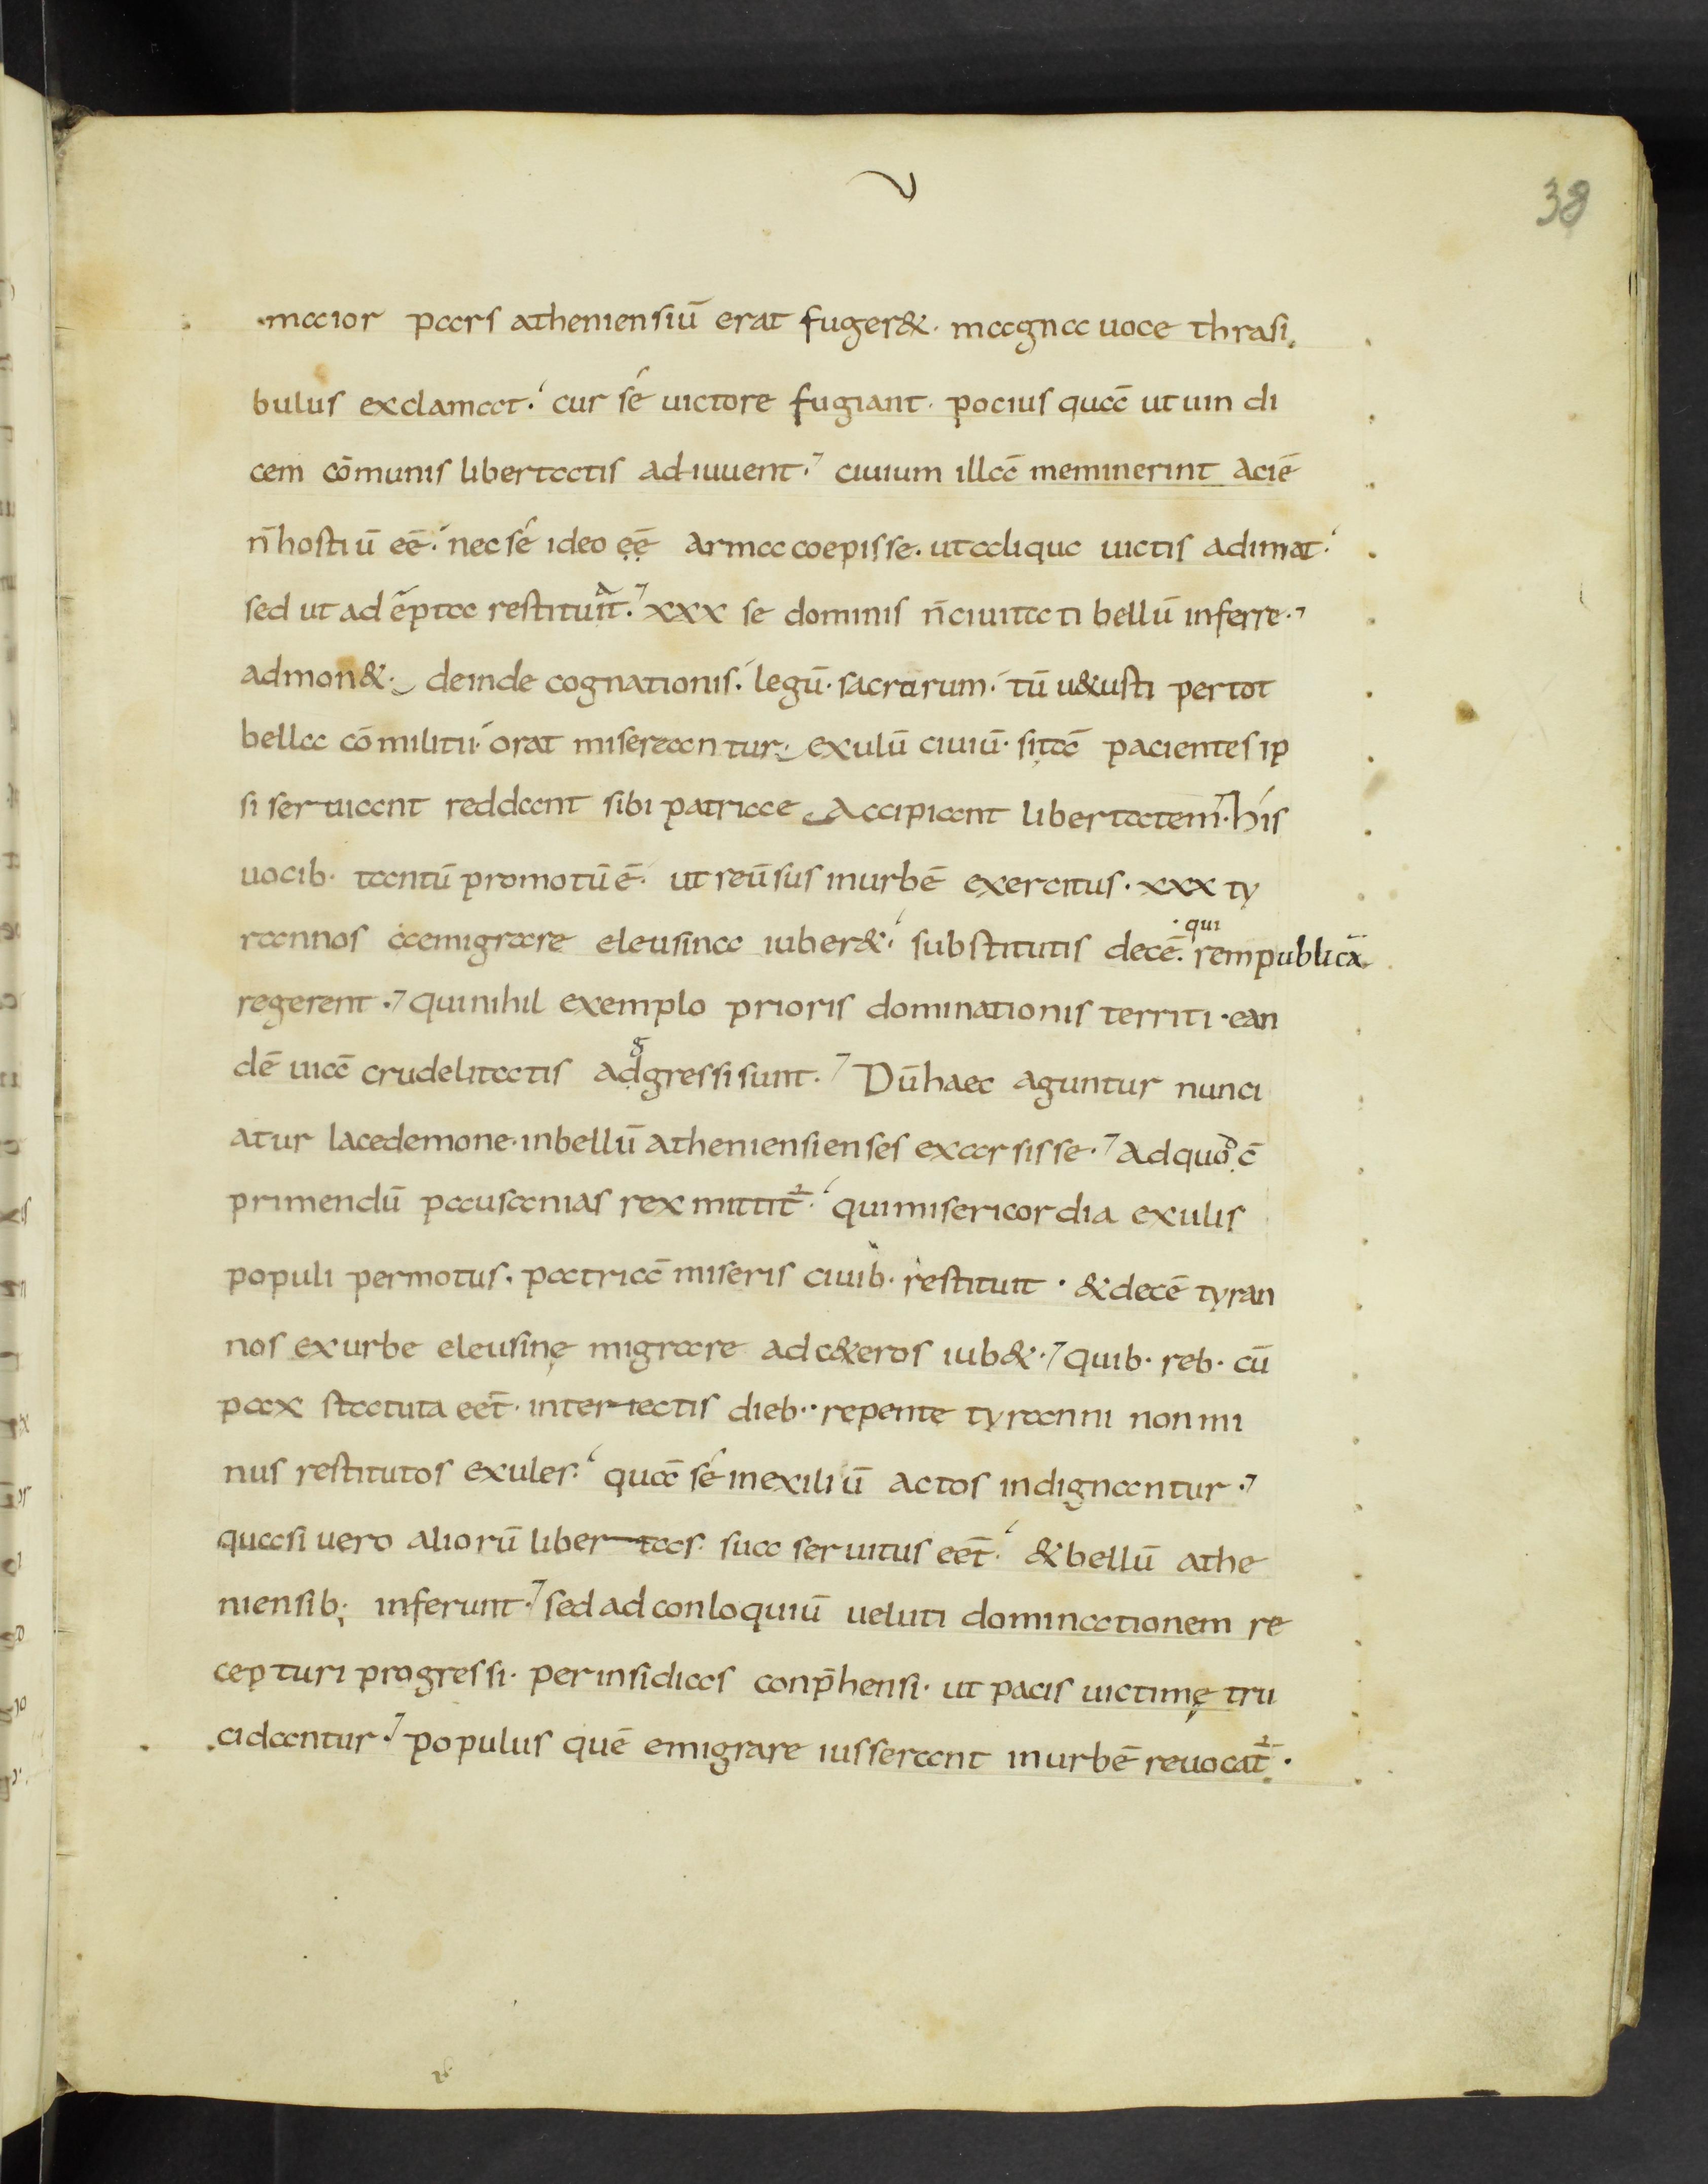 38
maior pars atheniensiū erat fuger&. magna uoce thrasi
bulus exclamat. cur sé uictore fugiant. pocius quā ut uin di
cem cōmunis libertatis adiuuent. ciuium illā meminerint aciē
n̄ hostiū eē. nec sé ideo eē arma coepisse. ut aliquc uictis adimat.
sed ut adēpta restituāt. xxx se dominis n̄ ciuitati bellū inferre.
admon&. deinde cognationis. legū. sacrorum. tū u&usti per tot
bella cōmilitii. orat misereantur. exulū ciuiū. si tā pacientes ip
si seruiant reddant sibi patriae Accipiant libertatem. his
uocib. tantū promotū ē. ut reūsus in urbē exercitus. xxx ty
rannos aemigrare eleusina iuber&. substitutis decē.
qui
rempublicā
regerent. qui nihil exemplo prioris dominationis territi. ean
dē uiā crudelitatis ad
g
gressi sunt. Dū haec aguntur nunci
atur lacedemone. in bellū atheniensienses exarsisse. Ad quod cō
primendū pausanias rex mittit̄. qui misericordia exulis
populi permotus. patriā miseris ciuib. restituit. & decē tyran
nos ex urbe eleusinę migrare ad c&eros iub&. quib. reb. cū
pax statuta eēt. interiectis dieb. repente tyranni non mi
nus restitutos exules. quā sé in exiliū actos indignantur.
quasi uero aliorū libertas sua seruitus eēt. & bellū athe
niensib; inferunt. sed ad conloquiū ueluti dominationem re
cepturi progressi. per insidias conp̄hensi. ut pacis uictimę tru
cidantur. populus quē emigrare iusserant in urbē reuocat̄.